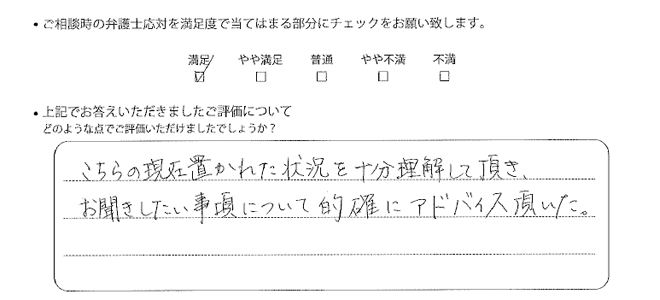 ・ご相談時の弁護士応対を満足度で当てはまる部分にチェックをお願い致します。
満足 やや満足 普通 やや不満 不満
☑ ☐ ☐ ☐ ☐
・上記でお答えいただきましたご評価について
どのような点でご評価いただけましたでしょうか？
こちらの現在置かれた状況を十分理解して頂き、
お聞きしたい事項について的確にアドバイス頂いた。